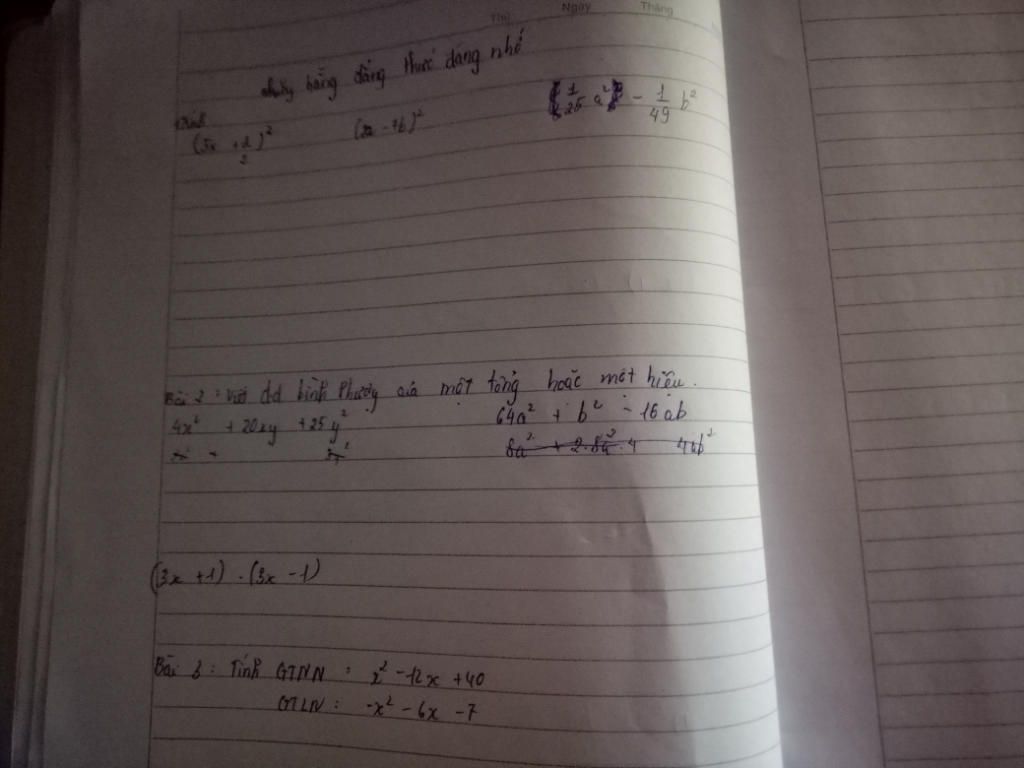 Thứ Ngày Tháng
hằng đẳng thức đáng nhớ
1/25 a² - 1/49 b²
(5x + 1/2)² ( - 7b)²
Bài 2: viết dd bình phương của một tổng hoặc một hiệu.
4x² + 20xy + 25y² 64a² + b² - 16ab
8a² + 2.8a².4 4ab²
(3x + 1) . (3x - 1)
Bài 3: Tính GTNN : x² - 12x + 40
GTLN : -x² - 6x - 7